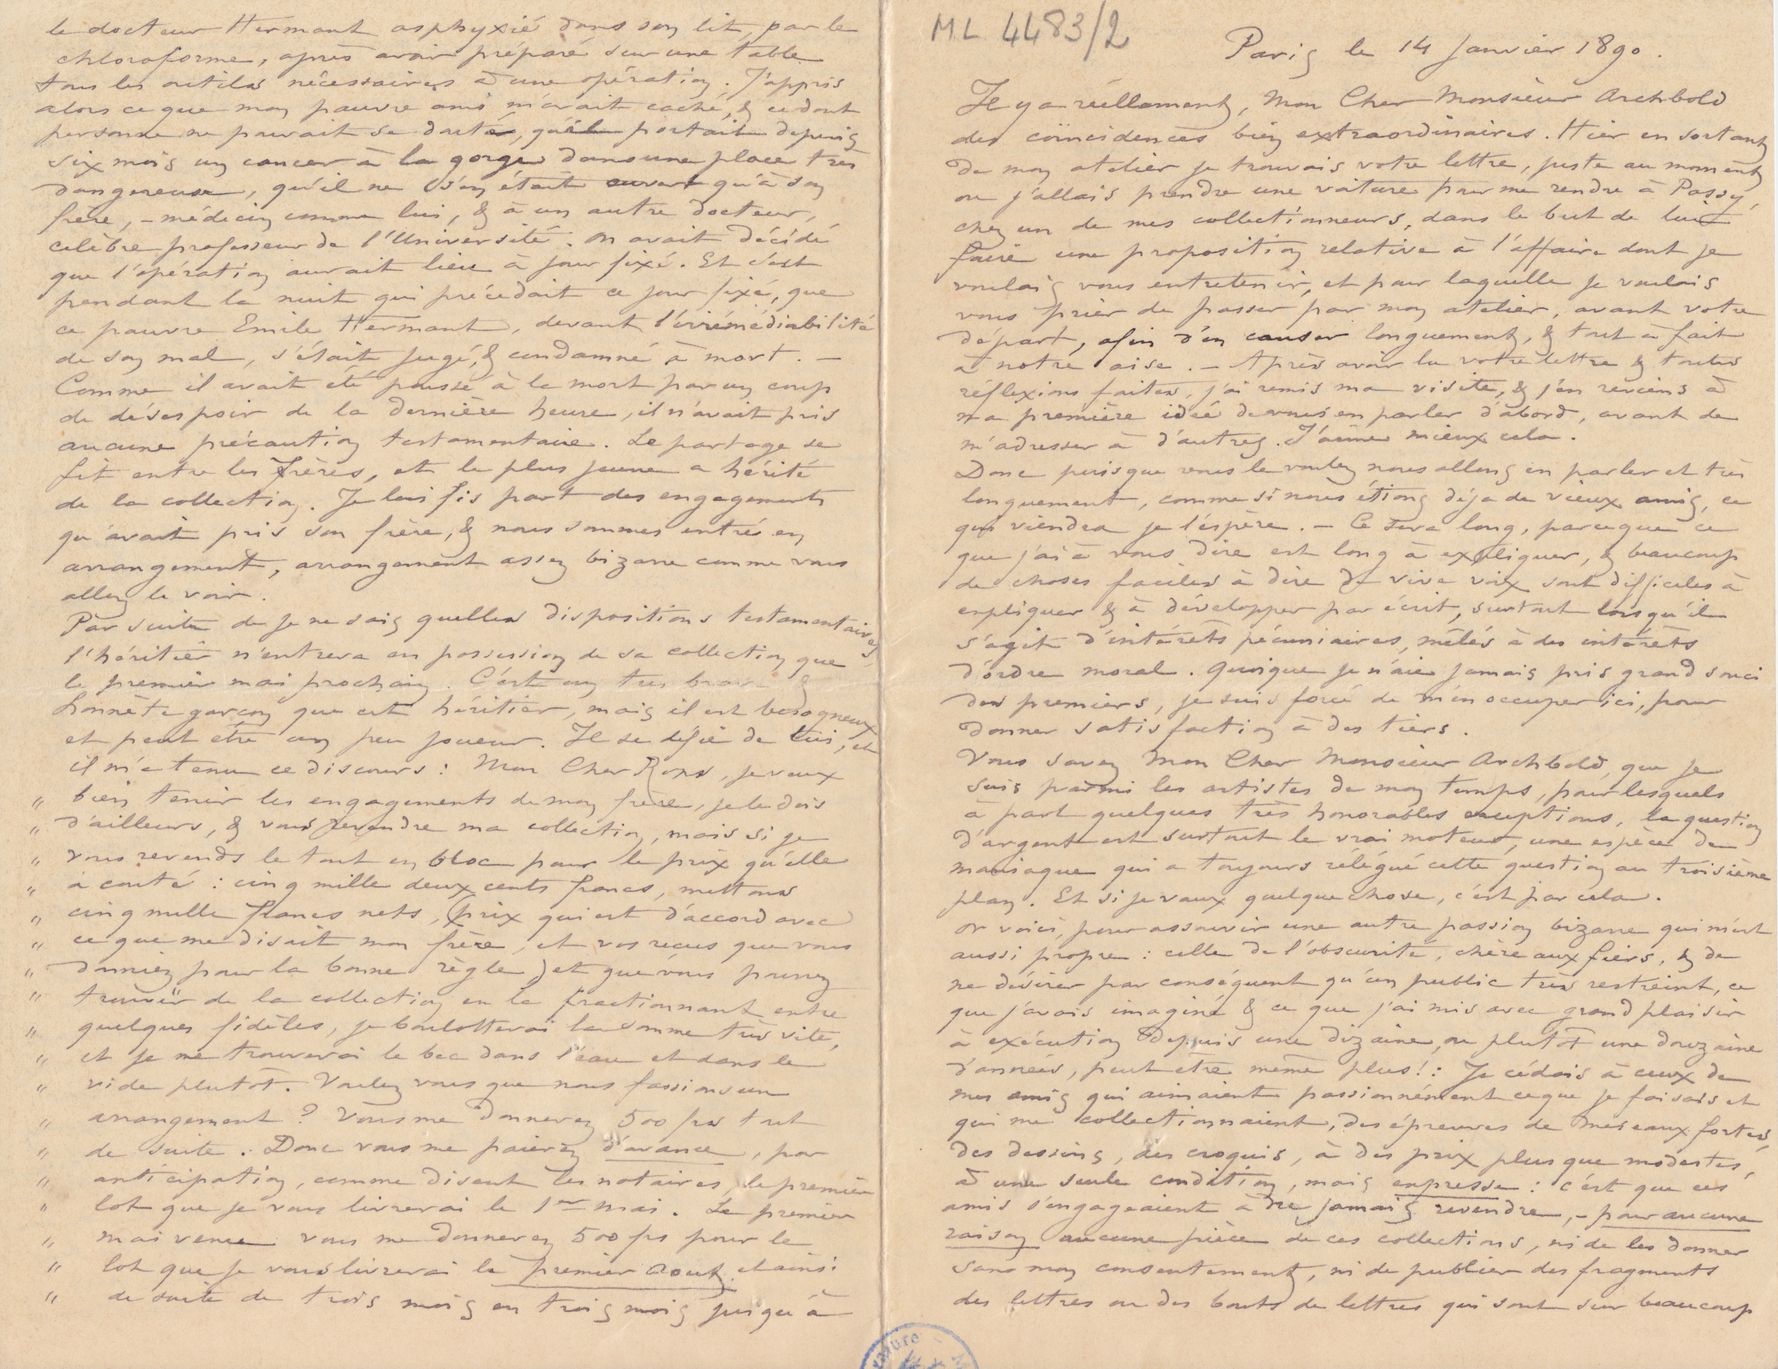 ML 4483/2
Paris le 14 Janvier 1890.
Il y a réellement, Mon Cher Monsieur Archbold
des coïncidences bien extraordinaires. Hier en sortant
de mon atelier je trouvais votre lettre, juste au moment
ou j'allais prendre une voiture pour me rendre à Passy,
chez un de mes collectionneurs, dans le but de lui
faire une proposition relative à l'affaire dont je
voulais vous entretenir, et pour laquelle je voulais
vous prier de passer par mon atelier, avant votre
départ, afin d'en causer longuement, & tout à fait
à notre aise. – Après avoir lu votre lettre & toutes
réflexions faites, j'ai remis ma visite, & j'en reviens à
ma première idée de vous en parler d'abord, avant de
m'adresser à d'autres. J'aime mieux cela.
Donc puisque vous le voulez nous allons en parler et très
longuement, comme si nous étions déja de vieux amis, ce
qui viendra je l'éspère. – Ce sera long, parceque ce
que j'ai à vous dire est long à expliquer, & beaucoup
de choses faciles à dire de vive voix sont difficiles à
expliquer & à développer par écrit, surtout lorsqu'il
s'agit d'intérêts pécuniaires, mêlés à des intérets
d'ordre moral. Quoique je n'aie jamais pris grand souci
des premiers, je suis forcé de m'en occuper ici, pour
donner satisfaction à des tiers.
Vous savez Mon Cher Monsieur Archbold, que je
suis parmi les artistes de mon temps, pour lesquels
à part quelques très honorables exceptions, la question
d'argent est surtout le vrai moteur, une espèce de
maniaque qui a toujours rélégué cette question au troisième
plan. Et si je vaux quelque chose, c'est par cela.
Or voici, pour assouvir une autre passion bizarre qui m'est
aussi propre : celle de l'obscurité, chère aux fiers, & de
ne désirer par conséquent qu'un public très restreint, ce
que j'avais imaginé & ce que j'ai mis avec grand plaisir
à exécution depuis une dizaine, ou plutôt une douzaine
d'années, peut etre même plus! : Je cédais à ceux de
mes amis qui aimaient passionnément ce que je faisais et
qui me collectionnaient, des épreuves de mes eaux fortes,
des dessins, des croquis, à des prix plus que modestes,
à une seule condition, mais expresse : c'est que ces
amis s'engageaient à ne jamais revendre, – pour aucune
raison aucune pièce de ces collections, ni de les donner
sans mon consentement, ni de publier des fragments
des lettres ou des bouts de lettres qui sont sur beaucoup
le docteur Hermant asphyxié dans son lit, par le
chloroforme, après avoir préparé sur une table
tous les outils nécessaires à une opération. J'appris
alors ce que mon pauvre ami m'avait caché, & ce dont
personne ne pouvait se douter, qu'il portait depuis
six mois un cancer à la gorge dans une place très
dangereuse, qu'il ne s'en était ouvert qu'à son
frère, – médecin comme lui, & à un autre docteur,
célèbre professeur de l'Université. On avait décidé
que l'opération aurait lieu à jour fixé. Et c'est
pendant la nuit qui précédait ce jour fixé, que
ce pauvre Emile Hermant, devant l'irrémédiabilité
de son mal, s'était jugé, & condamné à mort. –
Comme il avait été poussé à la mort par un coup
de désespoir de la dernière heure, il n'avait pris
aucune précaution testamentaire. Le partage se
fit entre les frères, et le plus jeune a hérité
de la collection. Je lui fis part des engagements
qu'avait pris son frère, & nous sommes entrés en
arrangement, arrangement assez bizarre comme vous
allez le voir.
Par suite de je ne sais quelles dispositions testamentaires
l'héritier n'entrera en possession de sa collection que
le premier mai prochain. C'est un très brave &
honnête garçon que cet héritier, mais il est besogneux
et peut etre un peu joueur. Il se défie de lui, et
il m'a tenu ce discours : Mon Cher Rops, je veux
" bien tenir les engagements de mon frère, je le dois
" d'ailleurs, & vous revendre ma collection, mais si je
" vous revends le tout en bloc pour le prix qu'elle
" a couté : cinq mille deux cents francs, mettons
" cinq mille francs nets, (prix qui est d'accord avec
" ce que me disait mon frère, et vos reçus que vous
" donniez pour la bonne règle) et que vous pourrez
" trouver de la collection en la fractionnant entre
" quelques fidèles, je boulotterai la somme très vite,
" et je me trouverai le bec dans l'eau et dans le
" vide plutôt. Voulez vous que nous fassions un
" arrangement ? Vous me donnerez 500 frs tout
" de suite. Donc vous me paierez d'avance, par
" anticipation, comme disent les notaires, le premier
" lot que je vous livrerai le 1er mai. Le premier
" mai venu vous me donnerez 500 frs pour le
" lot que je vous livrerai le premier Aout, et ainsi
" de suite de trois mois en trois mois jusqu'à